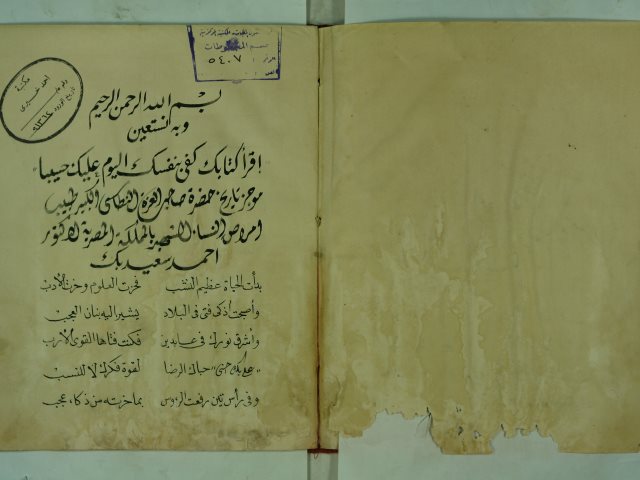 مكتبة
أحمد خيري
٥٤٠٧
بسم الله الرحمن الرحيم
وبه نستعين
اقرأ كتابك كفى بنفسك اليوم عليك حسيبا
موجز تاريخ حضرة صاحب العزة النطاسى الكبير طبيب
امراض النساء بالمملكة المصرية الدكتور
احمد سعيد بك
بدأت الحياة عظيم النشب فحزت العلوم وحزت الأدب
وأصبحت أذكى فتى في البلاد يشير اليه بنان العجب
وأشرق نورك في عابدين فكنت فتاها القوى الأرب
حباك الرضا لقوة فكرك لا للنسب
وفى رأس تين رفعت الرءوس بما حزته من ذكاء عجب